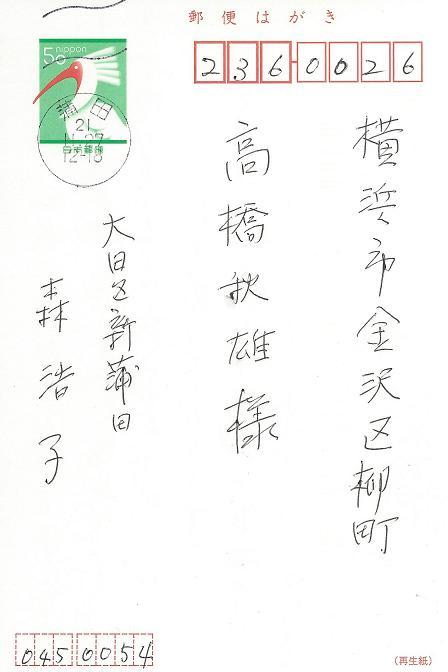 郵便はがき
50 nippon
蒲田
21
12-18
日本郵便
236-0026
横浜市金沢区柳町
高橋秋雄様
大田区新蒲田
森浩子
0450054
(再生紙)